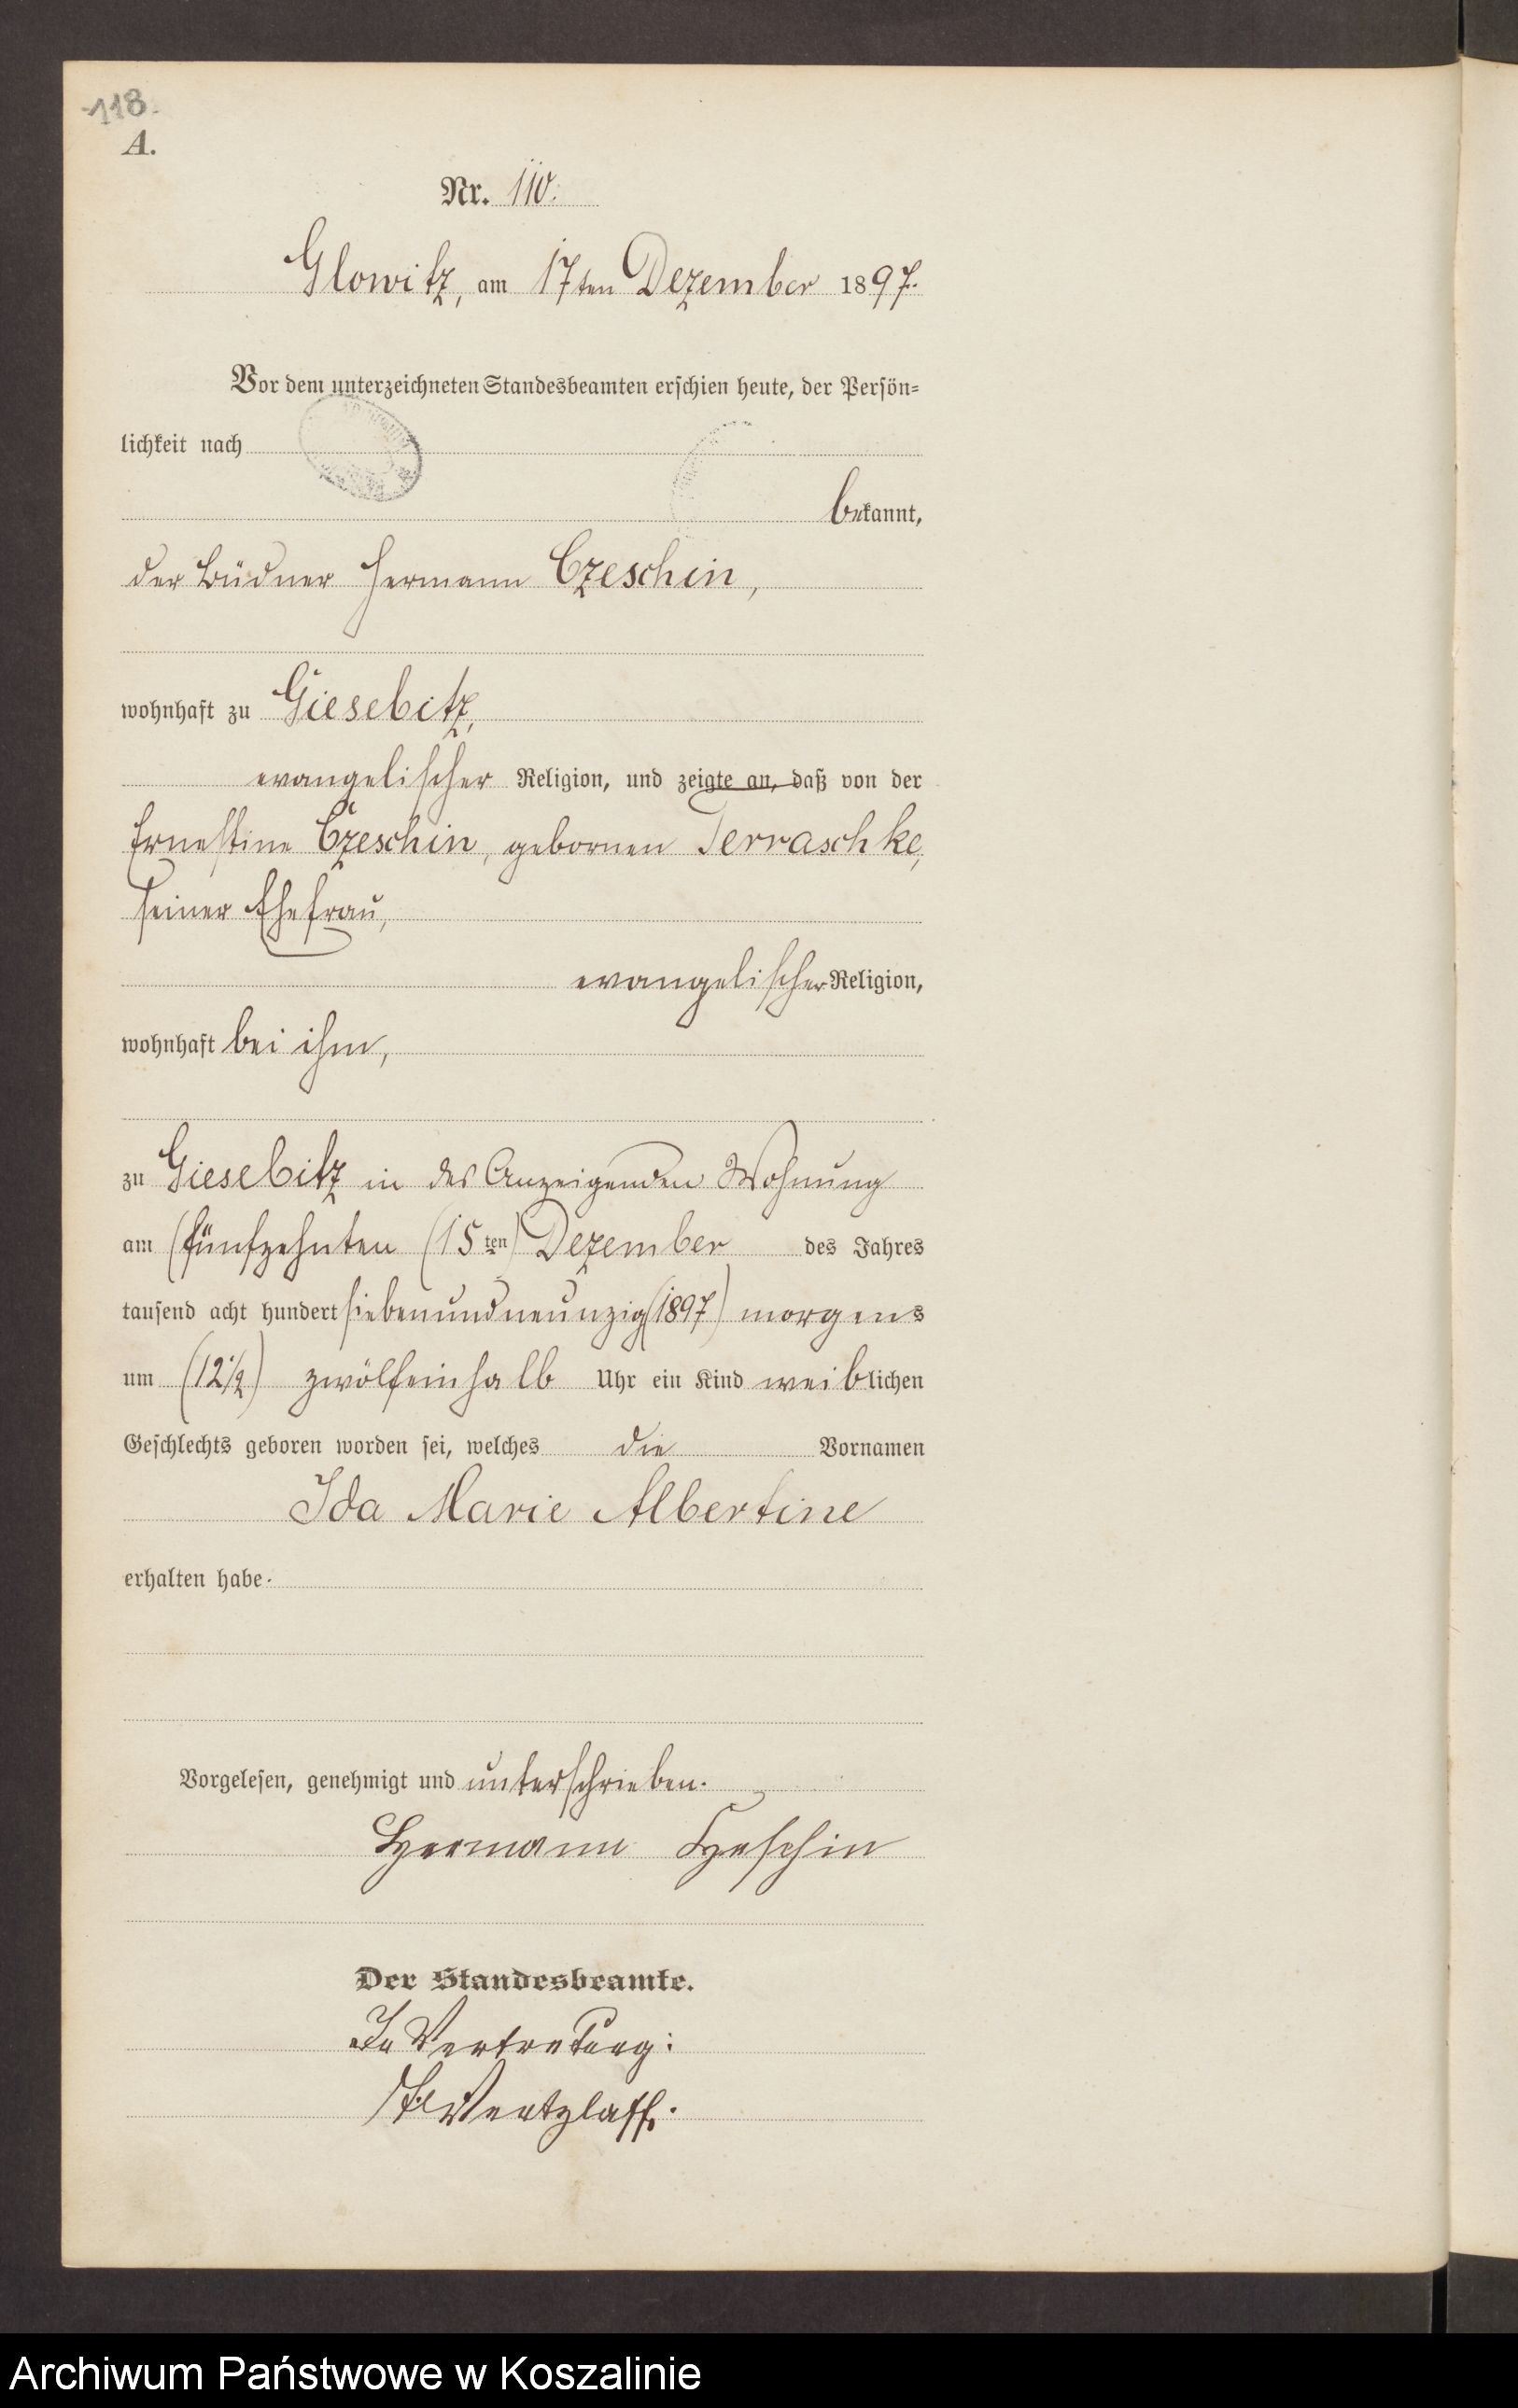 118.
A.
Nr. 110.
Glowitz, am 17ten Dezember 1897.
Vor dem unterzeichneten Standesbeamten erschien heute, der Persön=
lichkeit nach
bekannt,
der Büdner Hermann Czeschin,
wohnhaft zu Giesebitz,
evangelischer Religion, und zeigte an, daß von der
Ernestine Czeschin, gebornen Terraschke,
seiner Ehefrau,
evangelischer Religion,
wohnhaft bei ihm,
zu Giesebitz in des Anzeigenden Wohnung
am (fünfzehnten (15ten) Dezember des Jahres
tausend acht hundert siebenundneunzig (1897) morgens
um (12½) zwölfeinhalb Uhr ein Kind weiblichen
Geschlechts geboren worden sei, welches die Vornamen
Ida Marie Albertine
erhalten habe.
Vorgelesen, genehmigt und unterschrieben.
Hermann Czeschin
Der Standesbeamte.
In Vertretung:
Wentzlaff.
Archiwum Państwowe w Koszalinie